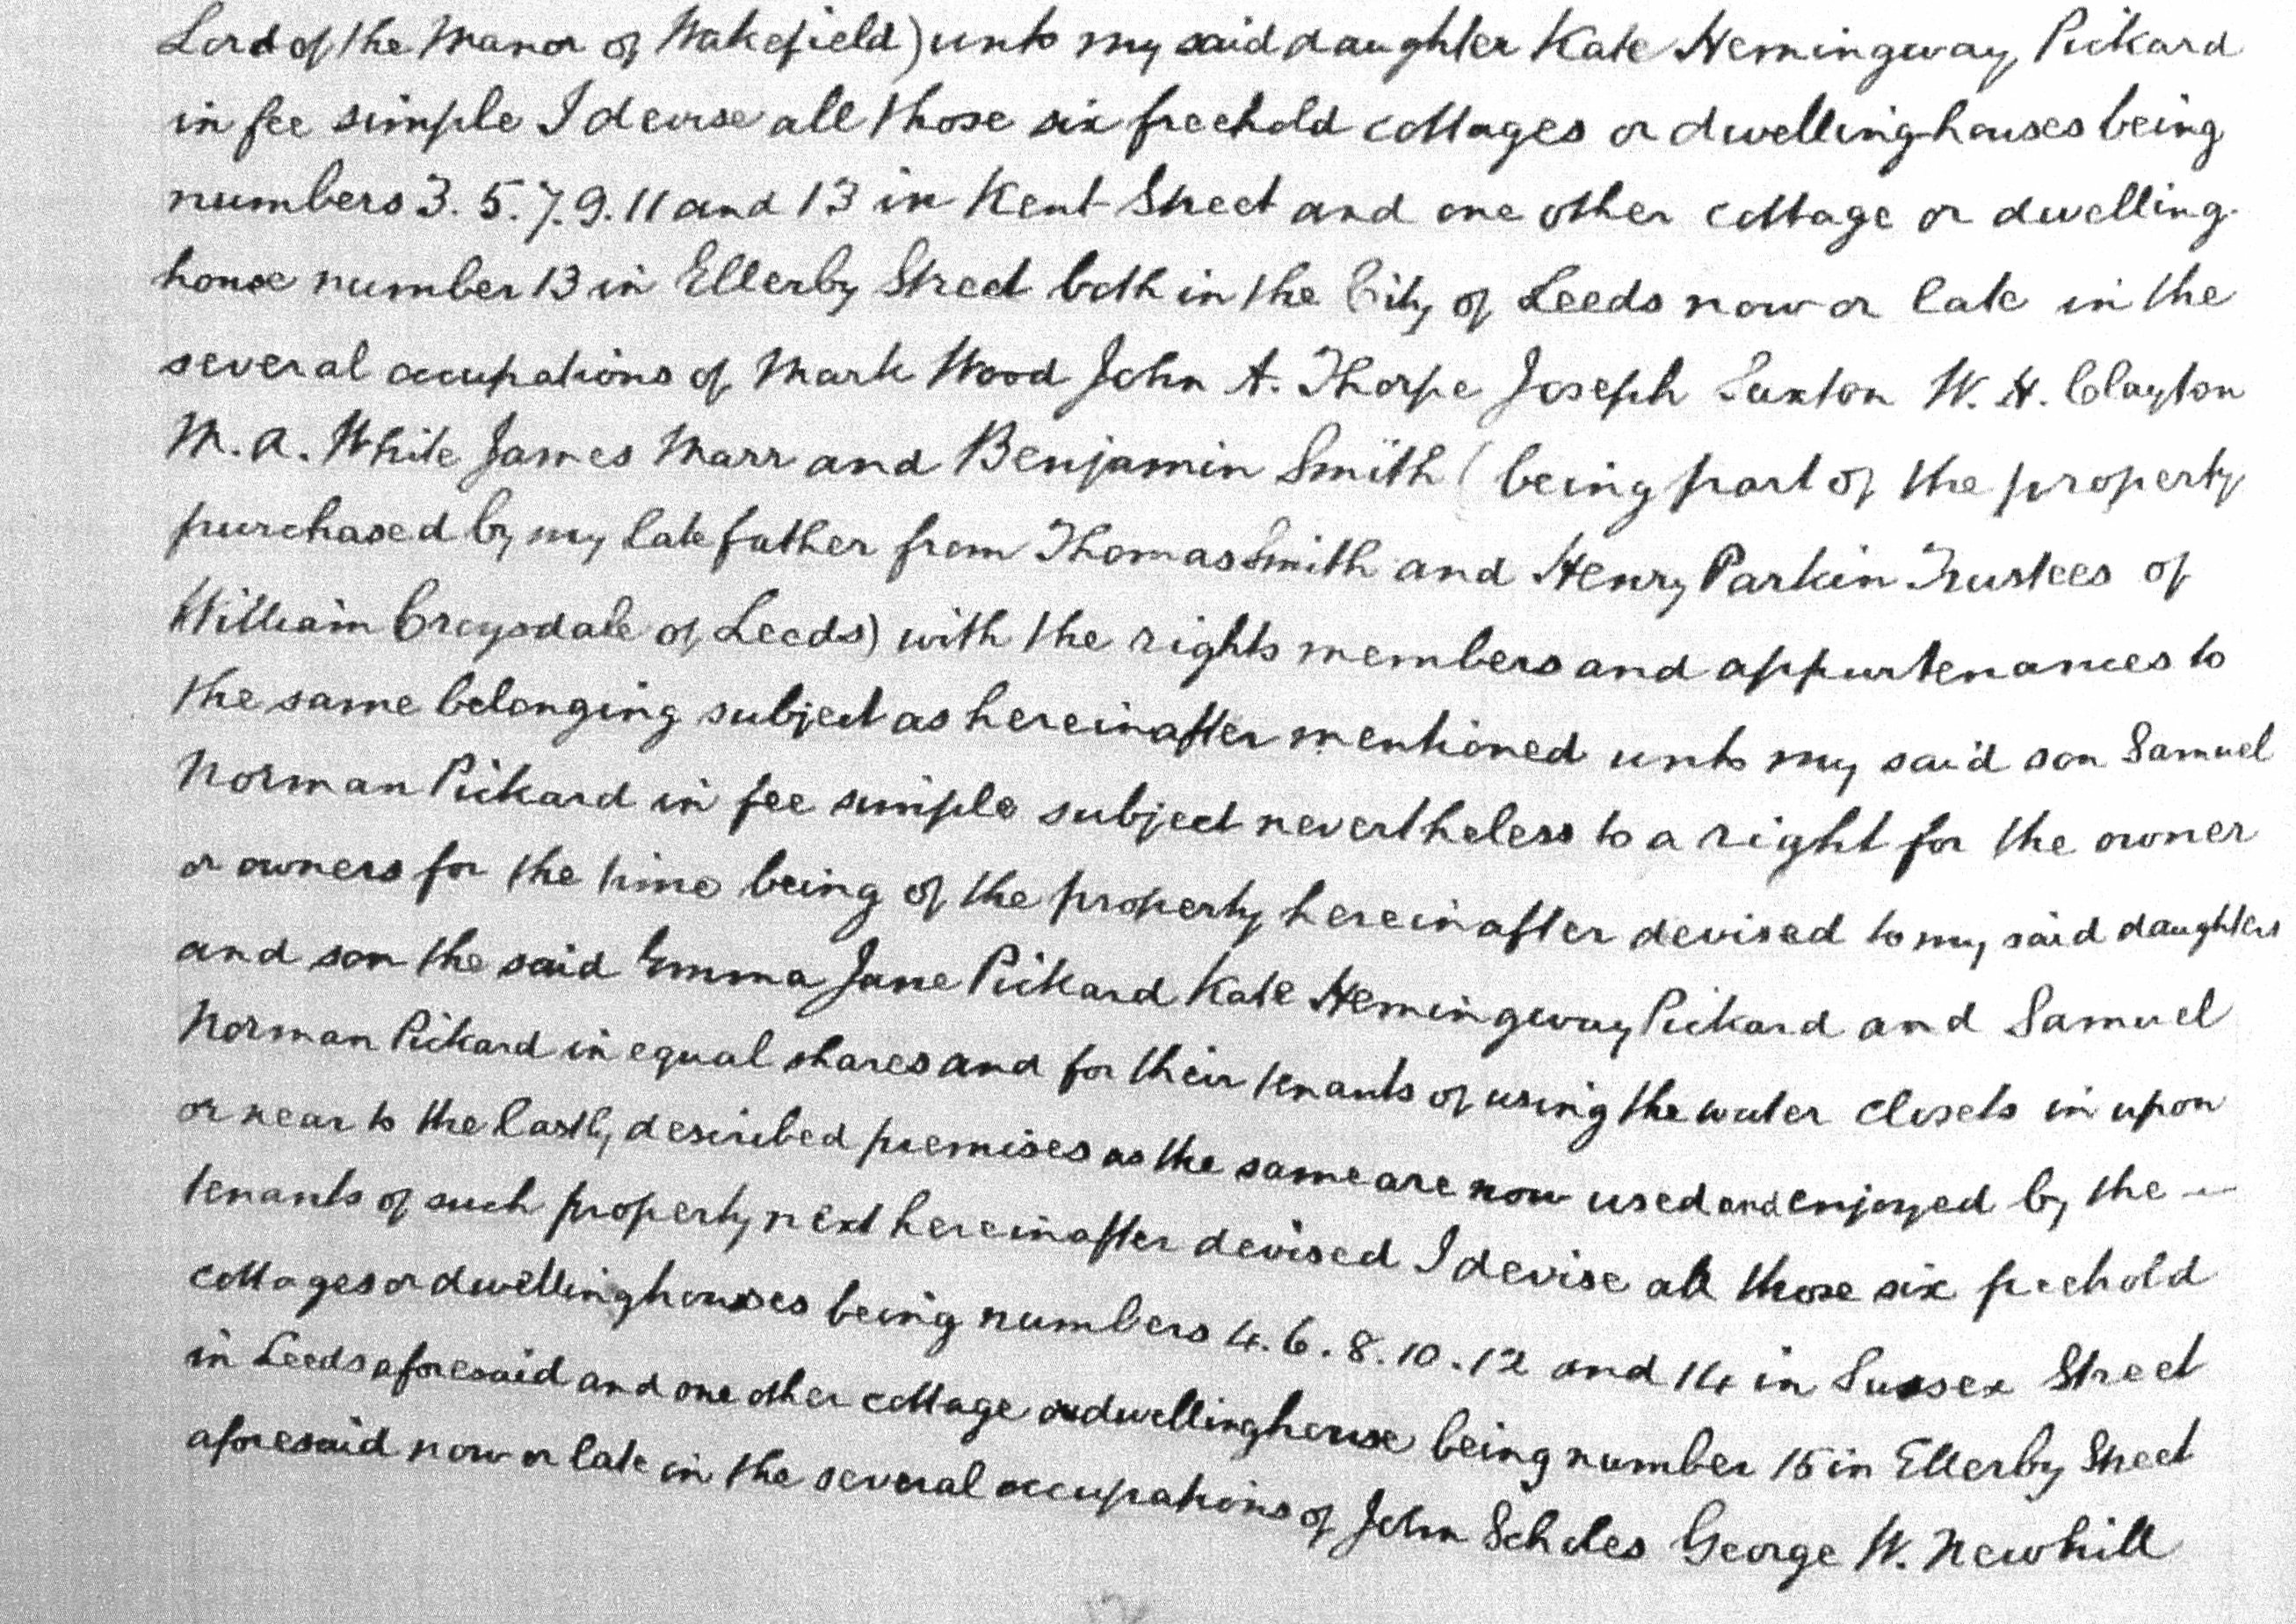 Lord of the Manor of Wakefield) unto my said daughter Kate Hemingway Pickard
in fee simple I devise all those six freehold cottages or dwellinghouses being
numbers 3. 5. 7. 9. 11 and 13 in Kent Street and one other cottage or dwelling-
house number 13 in Ellerby Street both in the City of Leeds now or late in the
several occupations of Mark Wood John A. Thorpe Joseph Luxton W. H. Clayton
M. A. White James Marr and Benjamin Smith (being part of the property
purchased by my late father from Thomas Smith and Henry Parkin Trustees of
William Craysdale of Leeds) with the rights members and appurtenances to
the same belonging subject as hereinafter mentioned unto my said son Samuel
Norman Pickard in fee simple subject nevertheless to a right for the owner
or owners for the time being of the property hereinafter devised to my said daughters
and son the said Emma Jane Pickard Kate Hemingway Pickard and Samuel
Norman Pickard in equal shares and for their tenants of using the water closets in upon
or near to the lastly described premises as the same are now used and enjoyed by the
tenants of such property next hereinafter devised I devise all those six freehold
cottages or dwellinghouses being numbers 4. 6. 8. 10. 12 and 14 in Sussex Street
in Leeds aforesaid and one other cottage or dwellinghouse being number 15 in Ellerby Street
aforesaid now or late in the several occupations of John Scholes George W. Newhill